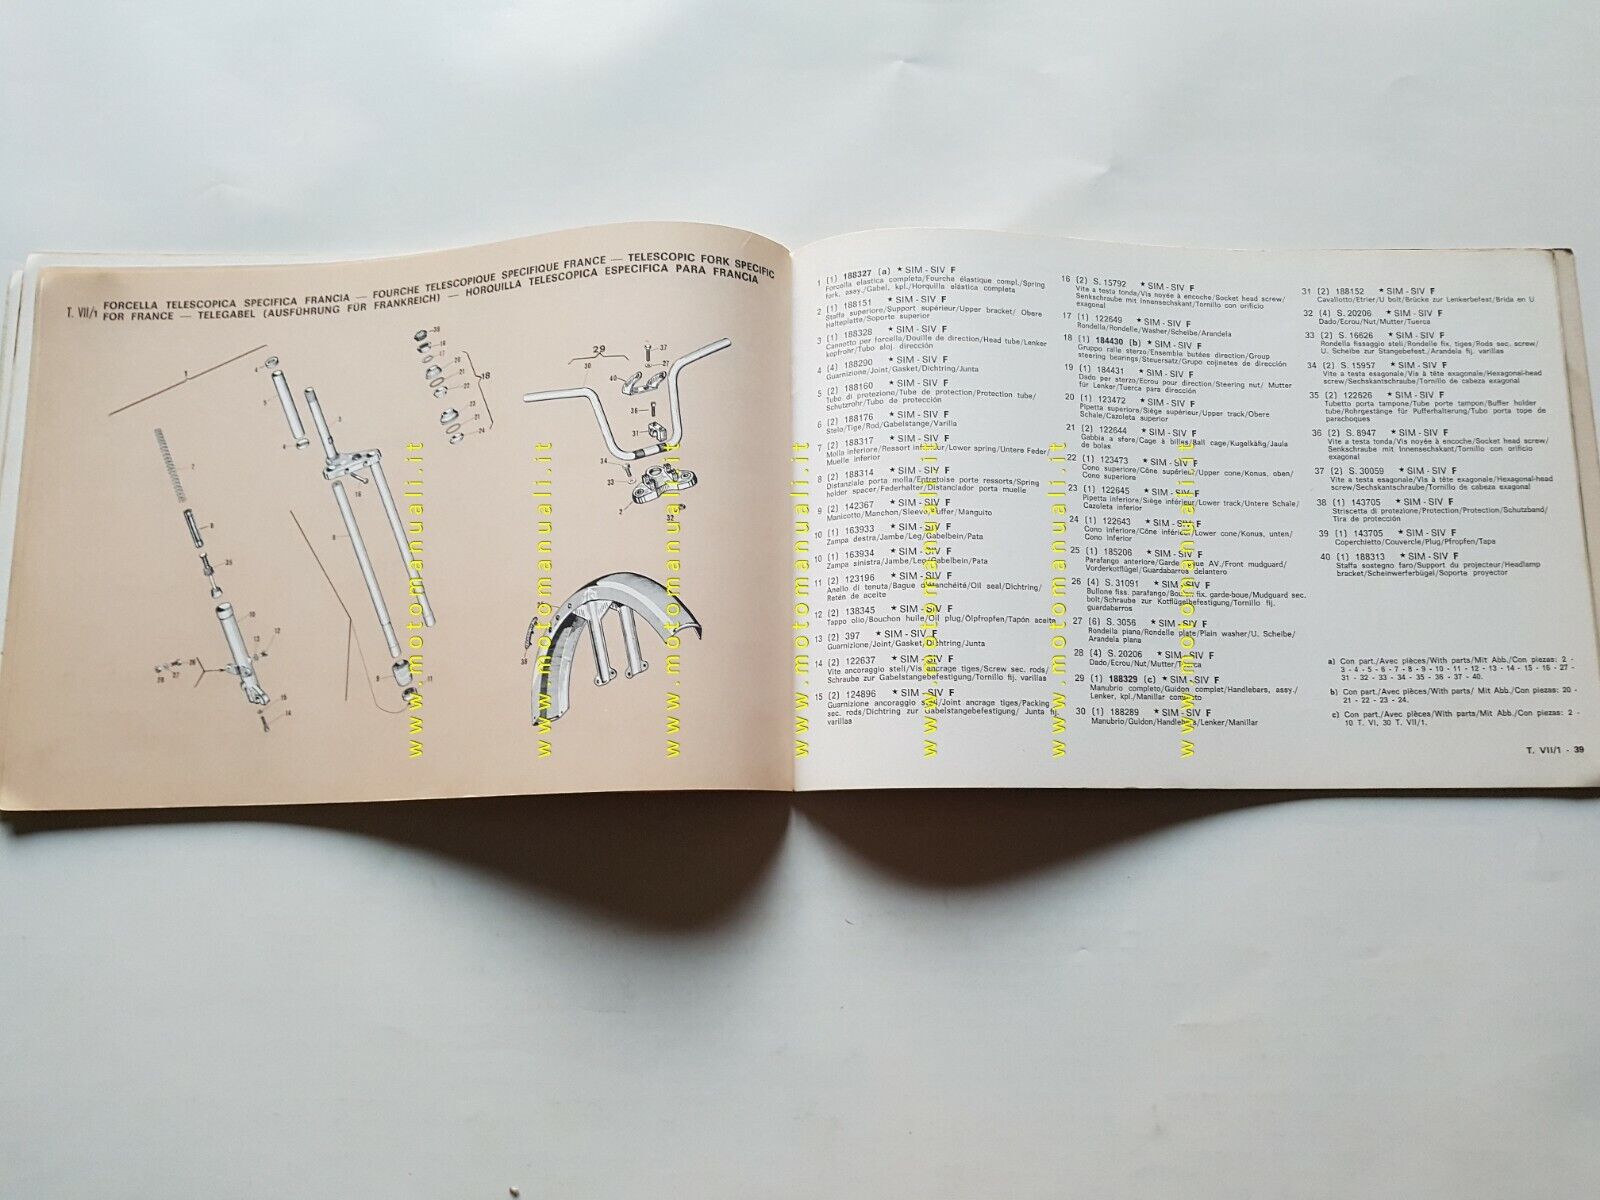 T. VII/1
FORCELLA TELESCOPICA SPECIFICA FRANCIA — FOURCHE TELESCOPIQUE SPECIFIQUE FRANCE — TELESCOPIC FORK SPECIFIC
FOR FRANCE — TELEGABEL (AUSFÜHRUNG FÜR FRANKREICH) — HORQUILLA TELESCOPICA ESPECIFICA PARA FRANCIA
1 (1) 188327 (a) ★ SIM - SIV F
Forcella elastica completa/Fourche élastique compl./Spring
fork, assy./Gabel, kpl./Horquilla elástica completa
2 (1) 188151 ★ SIM - SIV F
Staffa superiore/Support supérieur/Upper bracket/ Obere
Halteplatte/Soporte superior
3 (1) 188328 ★ SIM - SIV F
Cannotto per forcella/Douille de direction/Head tube/Lenker
kopfrohr/Tubo aloj. dirección
4 (4) 188290 ★ SIM - SIV F
Guarnizione/Joint/Gasket/Dichtring/Junta
5 (2) 188160 ★ SIM - SIV F
Tubo di protezione/Tube de protection/Protection tube/
Schutzrohr/Tubo de protección
6 (2) 188176 ★ SIM - SIV F
Stelo/Tige/Rod/Gabelstange/Varilla
7 (2) 188317 ★ SIM - SIV F
Molla inferiore/Ressort inférieur/Lower spring/Untere Feder/
Muelle inferior
8 (2) 188314 ★ SIM - SIV F
Distanziale porta molla/Entretoise porte ressorts/Spring
holder spacer/Federhalter/Distanciador porta muelle
9 (2) 142367 ★ SIM - SIV F
Manicotto/Manchon/Sleeve/Puffer/Manguito
10 (1) 163933 ★ SIM - SIV F
Zampa destra/Jambe/Leg/Gabelbein/Pata
10 (1) 163934 ★ SIM - SIV F
Zampa sinistra/Jambe/Leg/Gabelbein/Pata
11 (2) 123196 ★ SIM - SIV F
Anello di tenuta/Bague d'étanchéité/Oil seal/Dichtring/
Retén de aceite
12 (2) 138345 ★ SIM - SIV F
Tappo olio/Bouchon huile/Oil plug/Ölpfropfen/Tapón aceite
13 (2) 397 ★ SIM - SIV F
Guarnizione/Joint/Gasket/Dichtring/Junta
14 (2) 122637 ★ SIM - SIV F
Vite ancoraggio steli/Vis ancrage tiges/Screw sec. rods/
Schraube zur Gabelstangebefestigung/Tornillo fij. varillas
15 (2) 124896 ★ SIM - SIV F
Guarnizione ancoraggio steli/Joint ancrage tiges/Packing
sec. rods/Dichtring zur Gabelstangebefestigung/ Junta fij.
varillas
16 (2) S. 15792 ★ SIM - SIV F
Vite a testa tonda/Vis noyée à encoche/Socket head screw/
Senkschraube mit Innensechskant/Tornillo con orificio
exagonal
17 (1) 122649 ★ SIM - SIV F
Rondella/Rondelle/Washer/Scheibe/Arandela
18 (1) 184430 (b) ★ SIM - SIV F
Gruppo ralle sterzo/Ensemble butées direction/Group
steering bearings/Steuersatz/Grupo cojinetes de dirección
19 (1) 184431 ★ SIM - SIV F
Dado per sterzo/Ecrou pour direction/Steering nut/ Mutter
für Lenker/Tuerca para dirección
20 (1) 123472 ★ SIM - SIV F
Pipetta superiore/Siège supérieur/Upper track/Obere
Schale/Cazoleta superior
21 (2) 122644 ★ SIM - SIV F
Gabbia a sfere/Cage à billes/Ball cage/Kugelkäfig/Jaula
de bolas
22 (1) 123473 ★ SIM - SIV F
Cono superiore/Cône supérieur/Upper cone/Konus, oben/
Cono superiore
23 (1) 122645 ★ SIM - SIV F
Pipetta inferiore/Siège inférieur/Lower track/Untere Schale/
Cazoleta inferior
24 (1) 122643 ★ SIM - SIV F
Cono inferiore/Cône inférieur/Lower cone/Konus, unten/
Cono inferior
25 (1) 185206 ★ SIM - SIV F
Parafango anteriore/Garde boue AV./Front mudguard/
Vorderkotflügel/Guardabarros delantero
26 (4) S. 31091 ★ SIM - SIV F
Bullone fiss. parafango/Boulon fix. garde-boue/Mudguard sec.
bolt/Schraube zur Kotflügelbefestigung/Tornillo fij.
guardabarros
27 (6) S. 3056 ★ SIM - SIV F
Rondella piana/Rondelle plate/Plain washer/U. Scheibe/
Arandela plana
28 (4) S. 20206 ★ SIM - SIV F
Dado/Ecrou/Nut/Mutter/Tuerca
29 (1) 188329 (c) ★ SIM - SIV F
Manubrio completo/Guidon complet/Handlebars, assy./
Lenker, kpl./Manillar completo
30 (1) 188289 ★ SIM - SIV F
Manubrio/Guidon/Handlebars/Lenker/Manillar
31 (2) 188152 ★ SIM - SIV F
Cavallotto/Etrier/U bolt/Brücke zur Lenkerbefest/Brida en U
32 (4) S. 20206 ★ SIM - SIV F
Dado/Ecrou/Nut/Mutter/Tuerca
33 (2) S. 16626 ★ SIM - SIV F
Rondella fissaggio steli/Rondelle fix. tiges/Rods sec. screw/
U. Scheibe zur Stangebefest./Arandela fij. varillas
34 (2) S. 15957 ★ SIM - SIV F
Vite a testa esagonale/Vis à tête exagonale/Hexagonal-head
screw/Sechskantschraube/Tornillo de cabeza exagonal
35 (2) 122626 ★ SIM - SIV F
Tubetto porta tampone/Tube porte tampon/Buffer holder
tube/Rohrgestänge für Pufferhalterung/Tubo porta tope de
parachoques
36 (2) S. 8947 ★ SIM - SIV F
Vite a testa tonda/Vis noyée à encoche/Socket head screw/
Senkschraube mit Innensechskant/Tornillo con orificio
exagonal
37 (2) S. 30059 ★ SIM - SIV F
Vite a testa esagonale/Vis à tête exagonale/Hexagonal-head
screw/Sechskantschraube/Tornillo de cabeza exagonal
38 (1) 143705 ★ SIM - SIV F
Striscetta di protezione/Protection/Protection/Schutzband/
Tira de protección
39 (1) 143705 ★ SIM - SIV F
Coperchietto/Couvercle/Plug/Pfropfen/Tapa
40 (1) 188313 ★ SIM - SIV F
Staffa sostegno faro/Support du projecteur/Headlamp
bracket/Scheinwerferbügel/Soporte proyector
a) Con part./Avec pièces/With parts/Mit Abb./Con piezas: 2 -
3 - 4 - 5 - 6 - 7 - 8 - 9 - 10 - 11 - 12 - 13 - 14 - 15 - 16 - 27 -
31 - 32 - 33 - 34 - 35 - 36 - 37 - 40.
b) Con part./Avec pièces/With parts/ Mit Abb./Con piezas: 20 -
21 - 22 - 23 - 24.
c) Con part./Avec pièces/With parts/Mit Abb./Con piezas: 2 -
10 T. VI, 30 T. VII/1.
T. VII/1 - 39
www.motomanuali.it
www.motomanuali.it
www.motomanuali.it
www.motomanuali.it
www.motomanuali.it
www.motomanuali.it
www.motomanuali.it